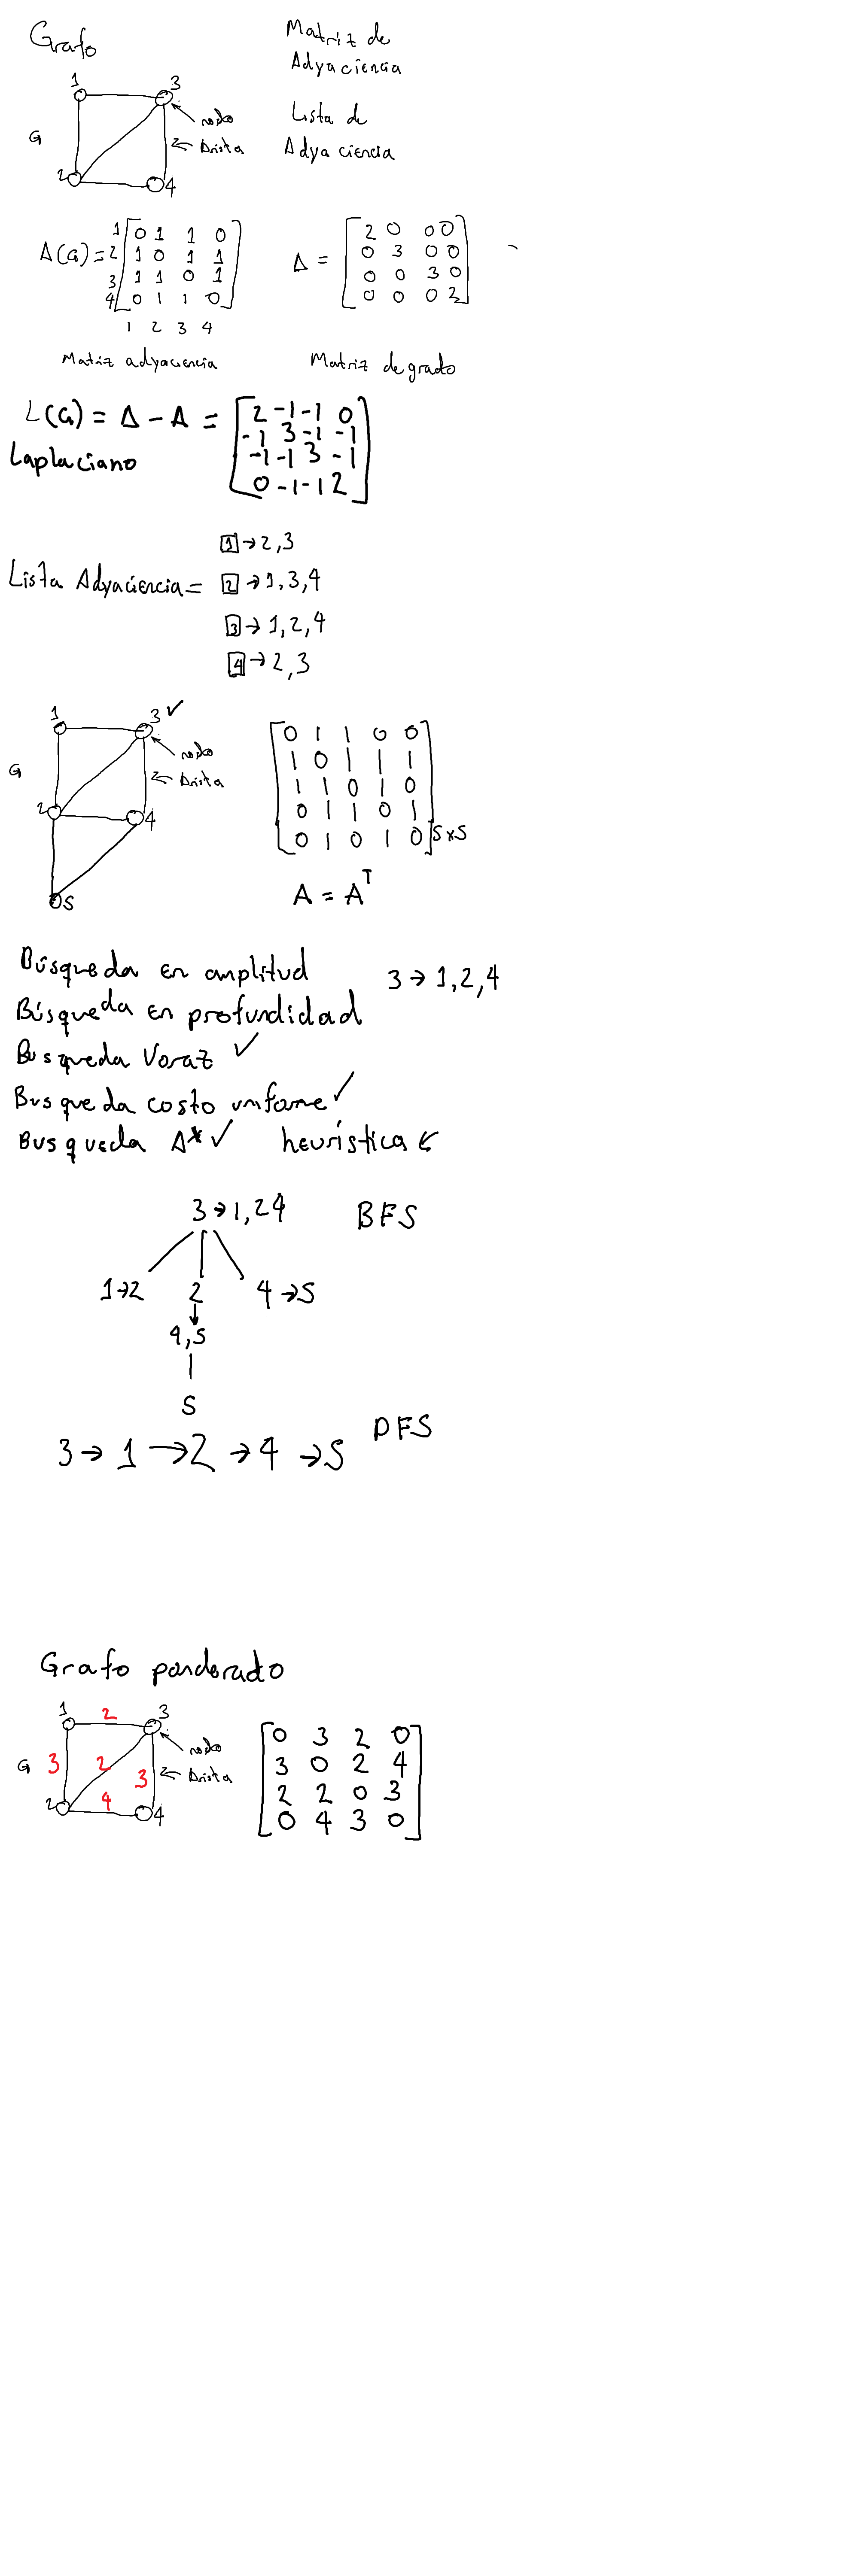 Grafo
Matriz de
Adyaciencia
Lista de
Adyaciencia
1 3
nodo
G
Arista
2 4
A(G)=
1 0 1 1 0
2 1 0 1 1
3 1 1 0 1
4 0 1 1 0
1 2 3 4
Δ =
2 0 0 0
0 3 0 0
0 0 3 0
0 0 0 2
Matriz adyaciencia
Matriz de grado
L(G) = Δ - A =
2 -1 -1 0
-1 3 -1 -1
-1 -1 3 -1
0 -1 -1 2
Laplaciano
Lista Adyaciencia =
1 → 2,3
2 → 1,3,4
3 → 1,2,4
4 → 2,3
1 3 ✓
nodo
G
Arista
2 4
5
0 1 1 0 0
1 0 1 1 1
1 1 0 1 0
0 1 1 0 1
0 1 0 1 0
5x5
A = A^T
Búsqueda en amplitud
3 → 1,2,4
Búsqueda en profundidad
Busqueda Voraz ✓
Busqueda costo uniforme ✓
Busqueda A* ✓ heurística ←
3 → 1,24
BFS
1→2 2 4→5
4,5
5
DFS
3 → 1 → 2 → 4 → 5
Grafo ponderado
1 2 3
nodo
G 3 2 3
Arista
2 4 4
0 3 2 0
3 0 2 4
2 2 0 3
0 4 3 0